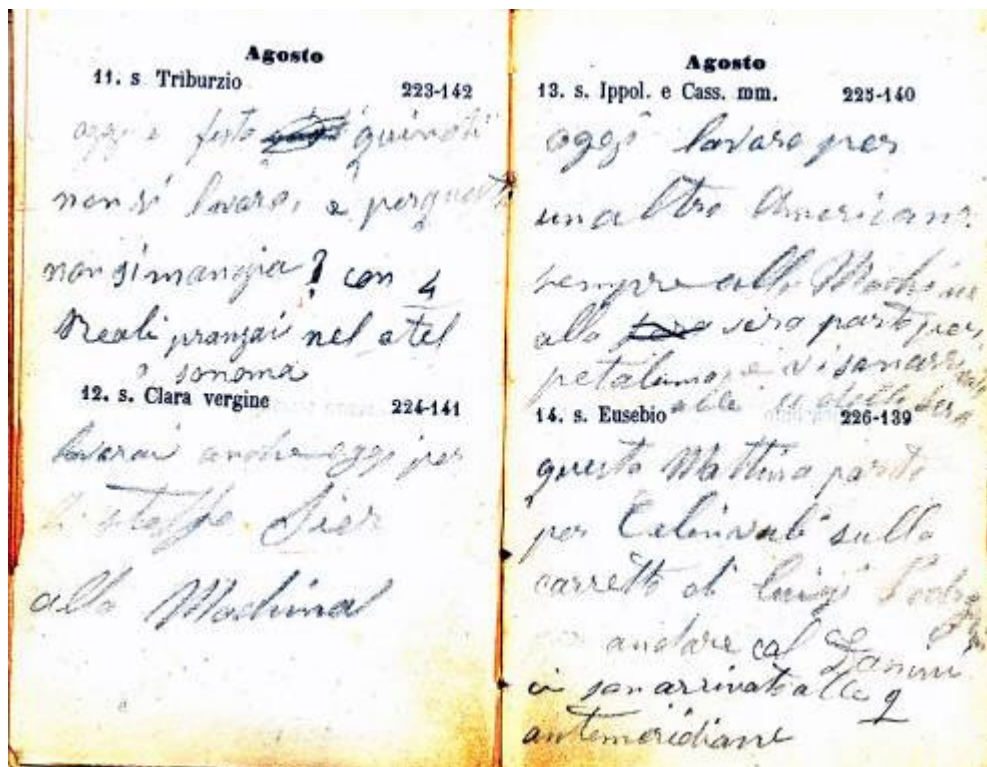 Agosto
11. s Triburzio 223-142
oggi è festa quindi
non si lavora, e perquesto
non si mangia? con 4
Reali pranzai nel otel
sonoma
12. s. Clara vergine 224-141
lavorai anche oggi per
stesso Sier
alla Machina
Agosto
13. s. Ippol. e Cass. mm. 225-140
oggi lavoro per
un altro Americano
sempre alla Machina
alla sera parto per
petaluma e vi son arrivato
alle della sera
14. s. Eusebio 226-139
questa Mattina parto
per sulla
carretta di Luigi
andare col Zanini
ci son arrivato alle 9
antemeridiane